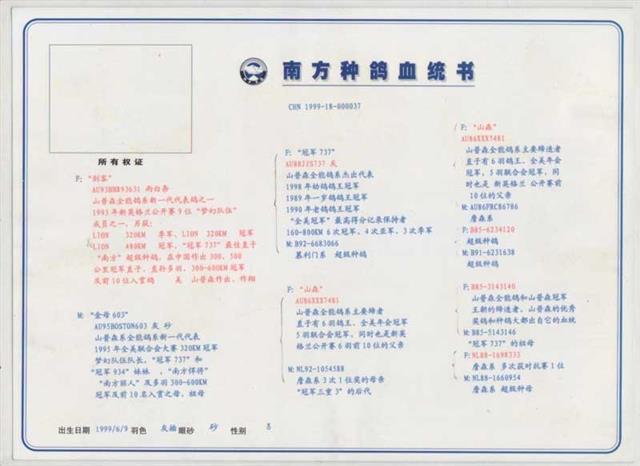 南方种鸽血统书
CHN 1999-18-000037
所有权证
F: "刺客"
AU93HHR93631 雨白条
山普森全能鸽系新一代代表鸽之一
1995年新英格兰公开赛9位"梦幻队伍"
成员之一，另获:
LION 320KM 季军、LION 320KM 冠军
LION 480KM 冠军，"冠军737"最佳直子
"南方"超级种鸽，在中国作出300、500
公里冠军直子、直孙多羽，300-600KM冠军
及前10位入赏鸽 美 山普森作出、作翔
M: "金母603"
AU95BOSTON603 灰 砂
山普森系全能鸽系新一代代表
1995年全美联合会大赛320KM冠军
梦幻队伍队长，"冠军737"和
"冠军934"妹妹，"南方悍将"
"南方丽人"及多羽300-600KM
冠军及前10名入赏之母，祖母
F: "冠军737"
AU88JJS737 灰
山普森全能鸽系杰出代表
1988年幼鸽鸽王冠军
1989年一岁鸽鸽王冠军
1990年老鸽鸽王冠军
"全美冠军"最高得分记录保持者
160-800KM 6次冠军，4次亚军，3次季军
M:B92-6683066
慕利门系 超级种鸽
F: "山森"
AU86XXX7481
山普森全能鸽系主要缔造者
直子有6羽鸽王、全美年会冠军
5羽联合会冠军，同时也是新英
格兰公开赛6羽前10位的父亲
M:NL92-1054588
詹森系3次1位奖的母亲
"冠军三重3"的后代
F: "山森"
AU86XXX7481
山普森全能鸽系主要缔造者
直子有6羽鸽王、全美年会
冠军，5羽联合会冠军，同
时也是 新英格兰公开赛前
10位的父亲
M:AU86FBC86786
詹森系
F:B85-6234120
超级种鸽
M:B91-6231638
超级种鸽
F:B85-3143146
山普森全能鸽和山普森冠军
王朝的缔造者，山普森的优秀
奖鸽和种鸽大都出自它的血统
M:B85-5143146
"冠军737"的祖母
F:NL88-1698333
詹森系 多次获对抗赛1位
M:NL88-1660954
詹森系 超级种母
出生日期 1999/6/9 羽色 灰 眼砂 砂 性别